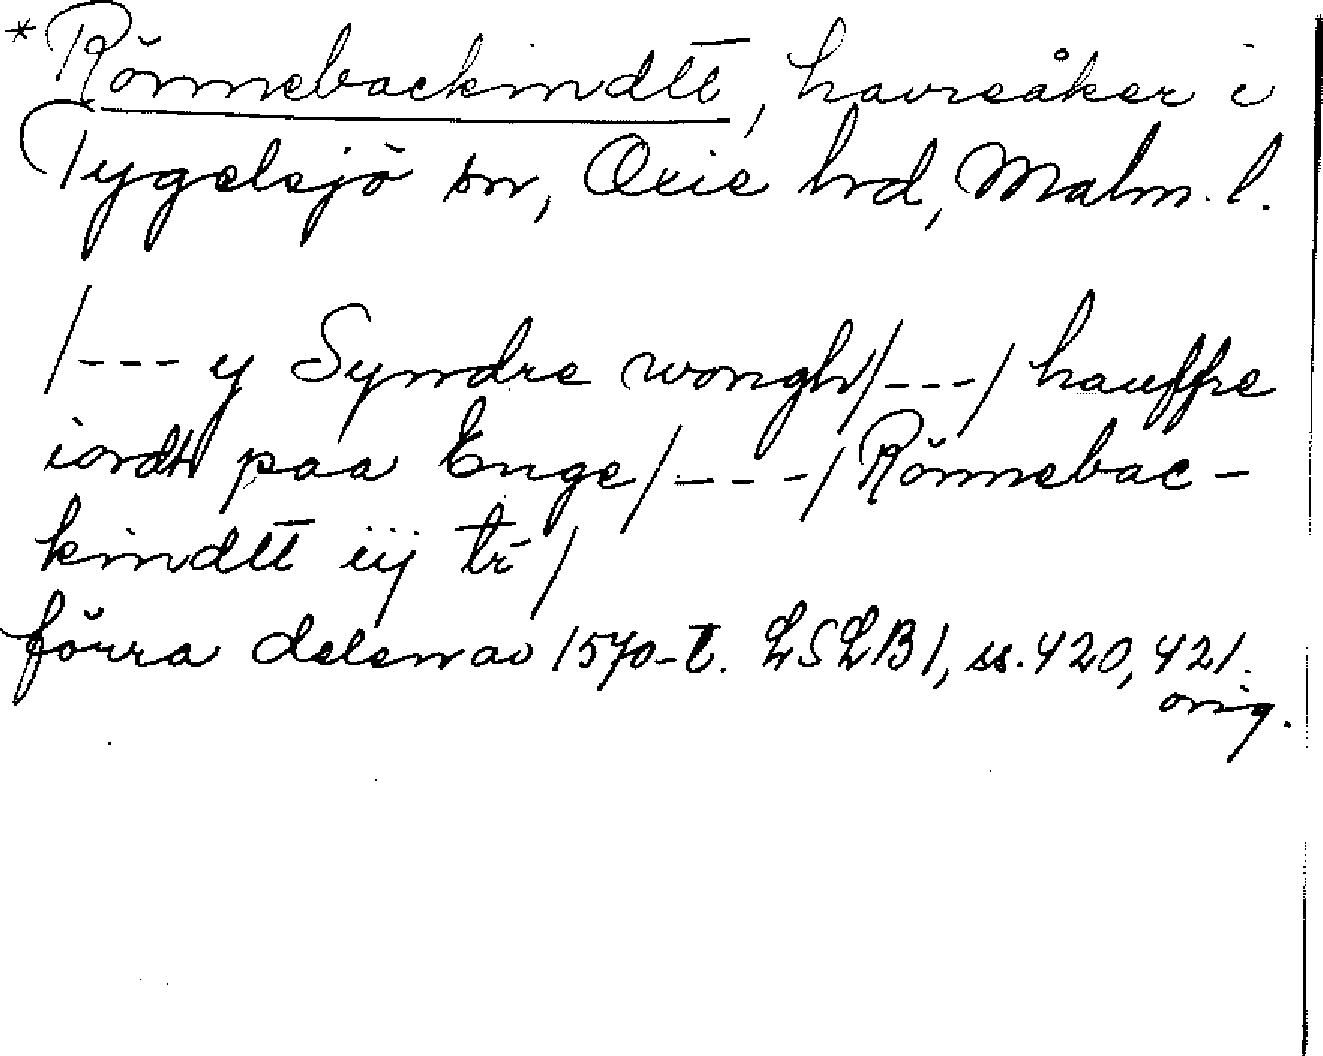 *Rönnebackindtt, havreåker i
Tygelsjö sn, Oxie hrd, Malm. l.
/--- y Syndre wongh/---/ hauffre
iordh paa Enge/---/Rönnebac-
kindtt iij tr/
förra delen av 1570-t. LSLB1, ss. 420, 421.
orig.